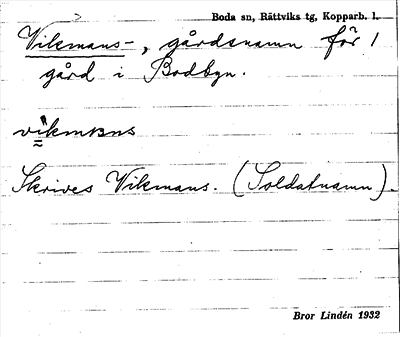 Boda sn, Rättviks tg, Kopparb. l.
Vikmans-, gårdsnamn för 1
gård i Bodbyn.
Skrives Vikmans. (Soldatnamn).
Bror Lindén 1932